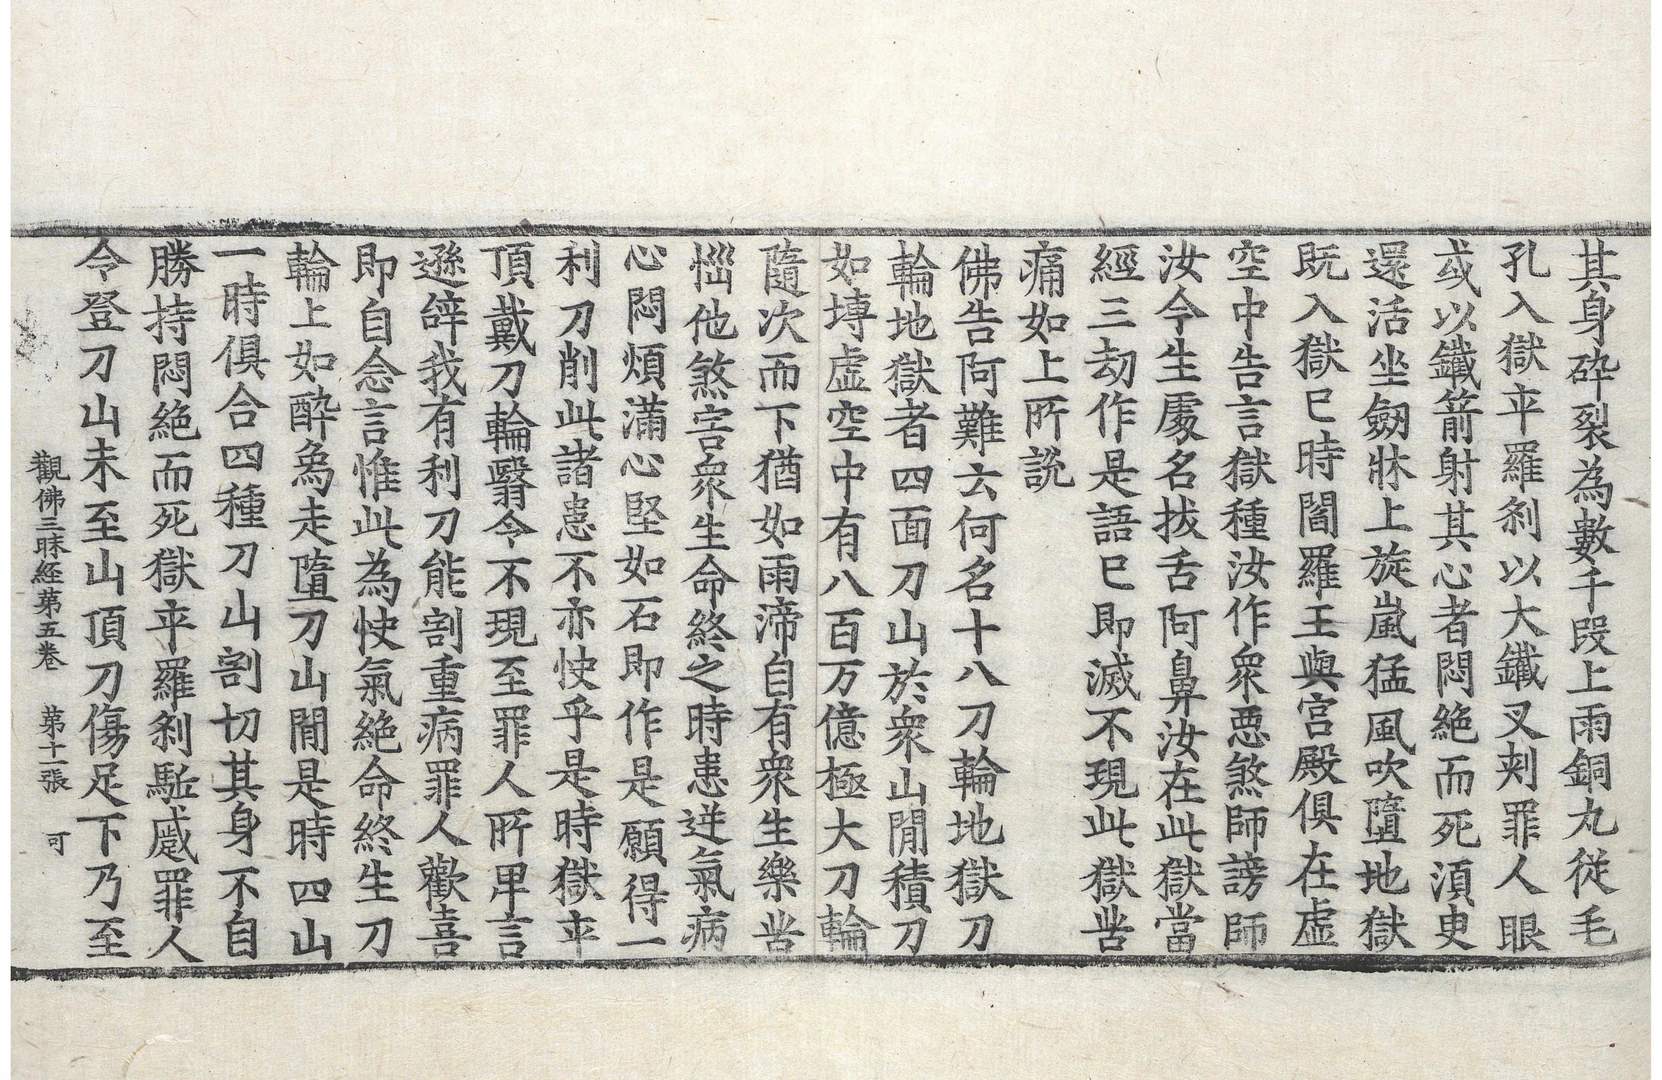 其身碎裂為數千段上雨銅丸從毛
孔入獄卒羅刹以大鐵叉刾罪人眼
或以鐵箭射其心者悶絶而死湏臾
還活坐劔牀上旋嵐猛風吹墮地獄
既入獄已時閻羅王與宮殿俱在虛
空中告言獄種汝作衆惡煞師謗師
汝今生處名拔舌阿鼻汝在此獄當
經三劫作是語已即滅不現此獄苦
痛如上所説
佛告阿難云何名十八刀輪地獄刀
輪地獄者四面刀山於衆山閒積刀
如塼虛空中有八百万億極大刀輪
隨次而下猶如雨渧自有衆生樂苦
惱他煞害衆生命終之時患逆氣病
心悶煩滿心堅如石即作是願得一
利刀削此諸患不亦快乎是時獄卒
頂戴刀輪翳令不現至罪人所卑言
遜辤我有利刀能割重病罪人歡喜
即自念言惟此為快氣絶命終生刀
輪上如醉象走墮刀山閒是時四山
一時俱合四種刀山割切其身不自
勝持悶絶而死獄卒羅刹駈蹙罪人
令登刀山未至山頂刀傷足下乃至
觀佛三昧經苐五卷　苐十一張　可